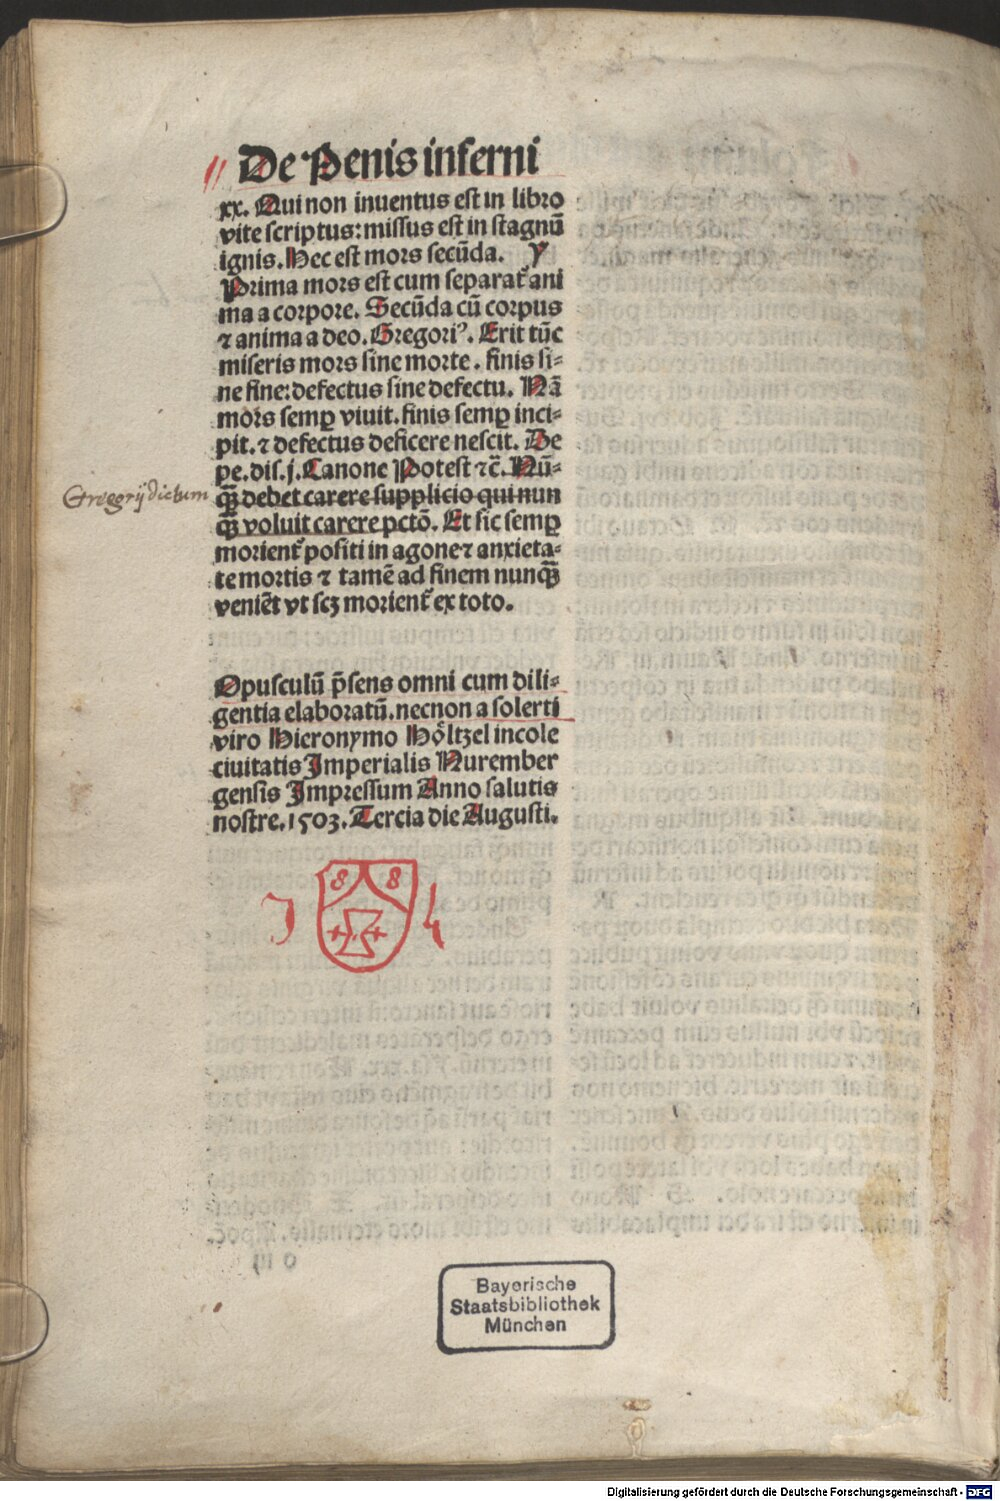 De Penis inferni
xx. Qui non inuentus est in libro
vite scriptus: missus est in stagnū
ignis. Hec est mors secūda. y
Prima mors est cum separat᷑ ani
ma a corpore. Secūda cū corpus
⁊ anima a deo. Gregoriꝰ. Erit tūc
miseris mors sine morte. finis si-
ne fine: defectus sine defectu. Nā
mors semꝑ viuit. finis semꝑ inci-
pit. ⁊ defectus deficere nescit. De
pe. dis. j. Canone Potest ⁊c̄. Nū-
Gregorij dictum
qꝫ̄ debet carere supplicio qui nun
qꝫ̄ voluit carere pctō. Et sic semꝑ
morient᷑ positi in agone ⁊ anxieta-
te mortis ⁊ tamē ad finem nunqꝫ̄
veniēt vt scꝫ morient᷑ ex toto.
Opusculū p̄sens omni cum dili-
gentia elaboratū. necnon a solerti
viro Hieronymo Höltzel incole
ciuitatis Imperialis Nurember
gensis Impressum Anno salutis
nostre. 1503. Tercia die Augusti.
8 8
J 4
Bayerische
Staatsbibliothek
München
Digitalisierung gefördert durch die Deutsche Forschungsgemeinschaft - DFG